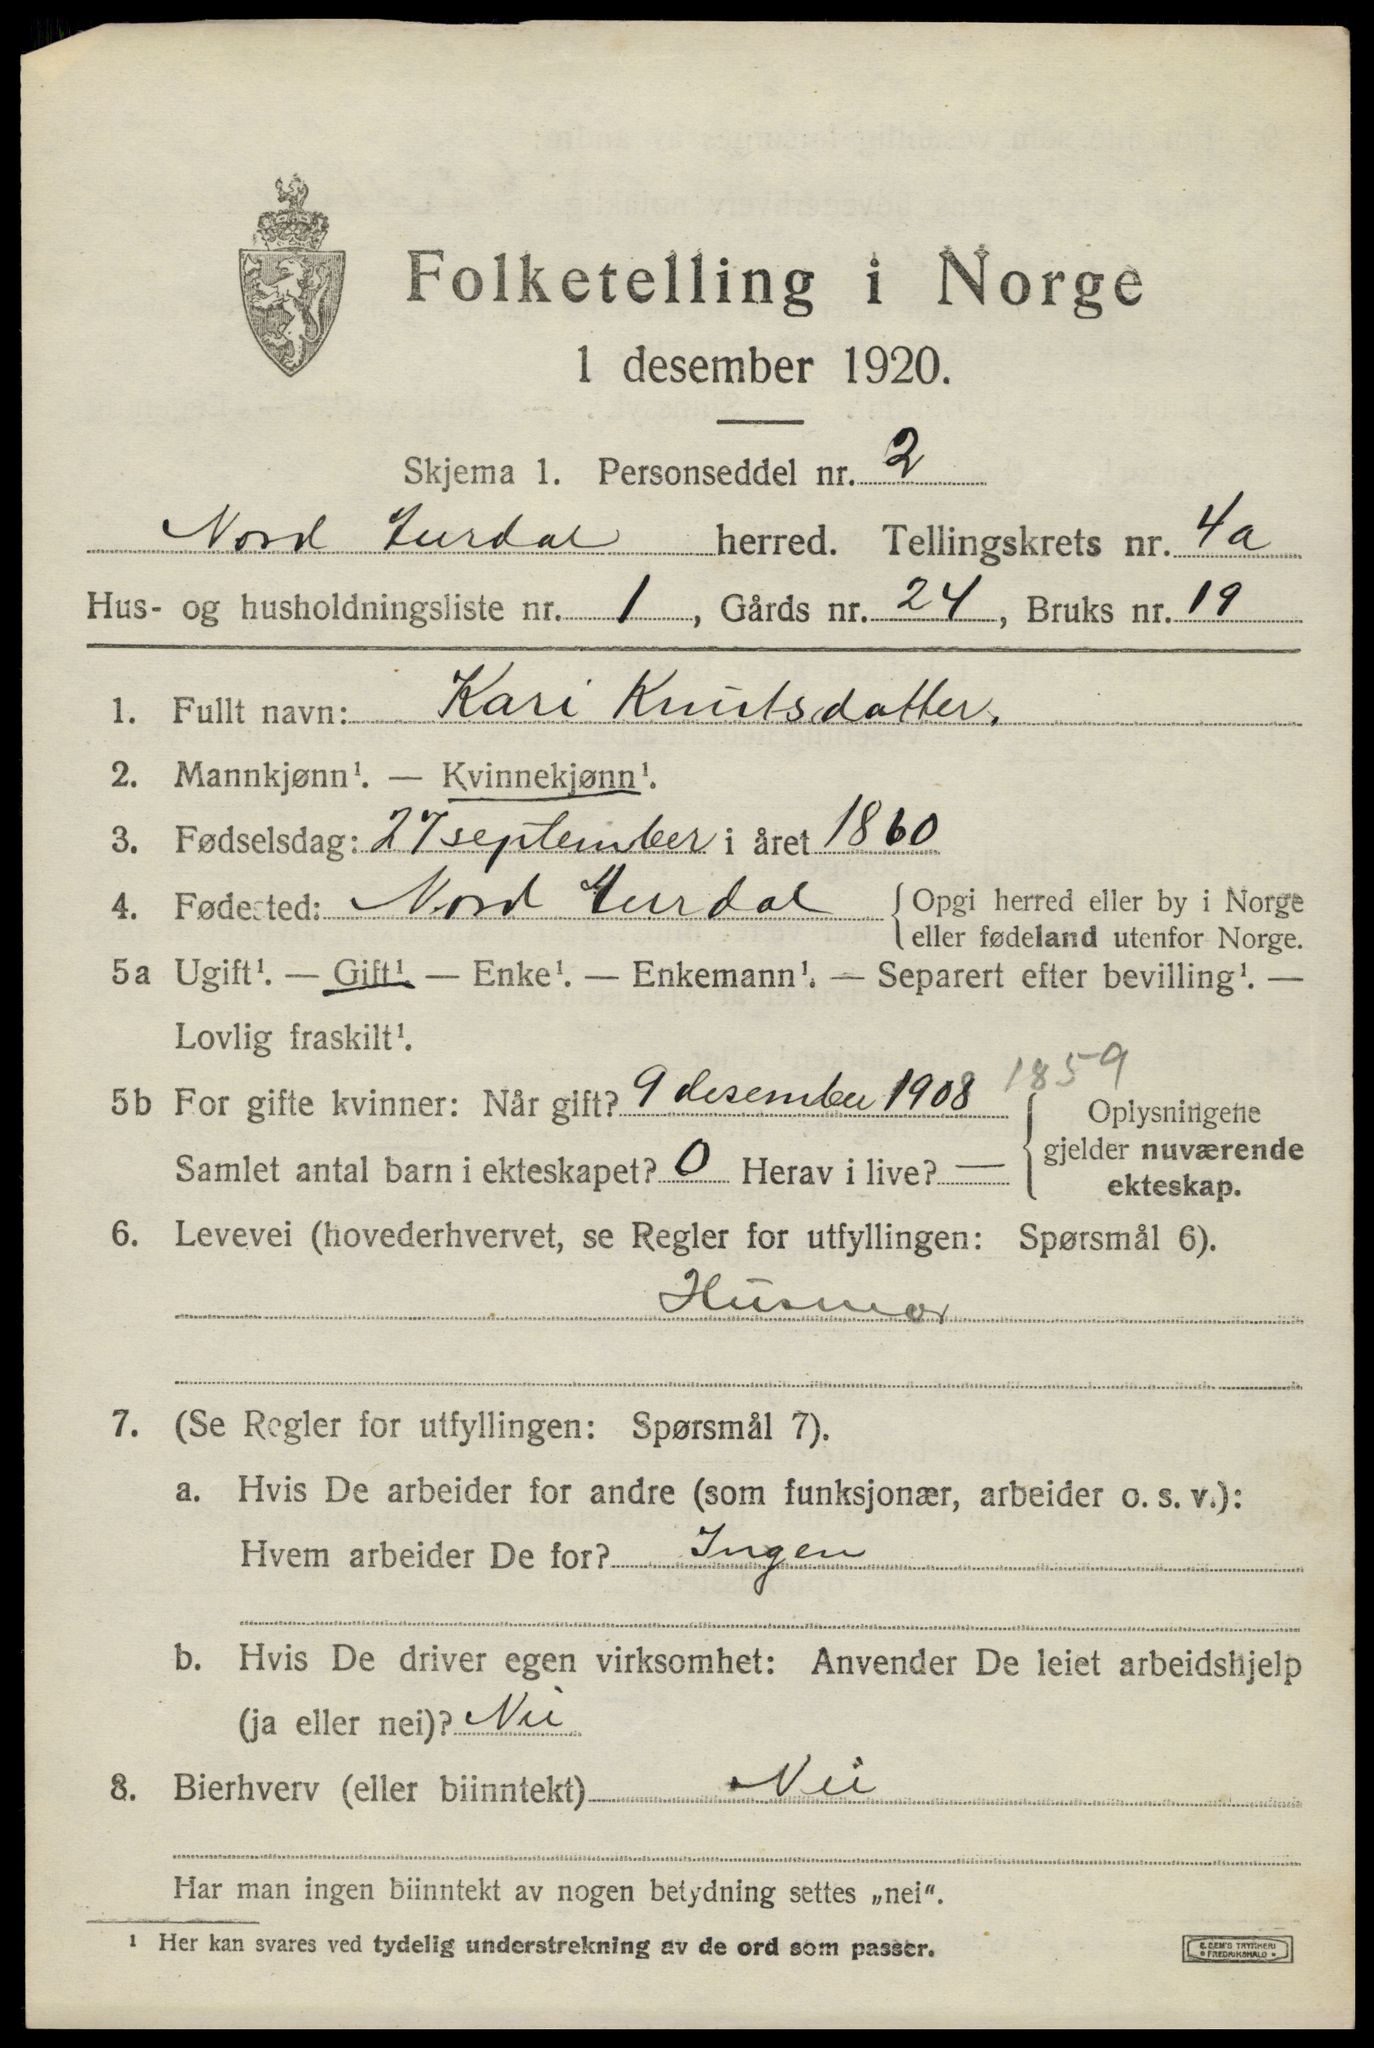 Folketelling i Norge
1 desember 1920.
Skjema 1. Personseddel nr. 2
Nord Aurdal herred. Tellingskrets nr. 4a
Hus- og husholdningsliste nr. 1, Gårds nr. 24, Bruks nr. 19
1. Fullt navn: Kari Knutsdatter.
2. Mannkjønn¹. — Kvinnekjønn¹.
3. Fødselsdag: 27 september i året 1860
4. Fødested: Nord Aurdal {Opgi herred eller by i Norge
eller fødeland utenfor Norge.
5a Ugift¹. — Gift¹. — Enke¹. — Enkemann¹. — Separert efter bevilling¹. —
Lovlig fraskilt¹.
1859
5b For gifte kvinner: Når gift? 9 desember 1908 { Oplysningene
gjelder nuværende
ekteskap.
Samlet antal barn i ekteskapet? 0 Herav i live? —
6. Levevei (hovederhvervet, se Regler for utfyllingen: Spørsmål 6).
Husmor
7. (Se Regler for utfyllingen: Spørsmål 7).
a. Hvis De arbeider for andre (som funksjonær, arbeider o. s. v.):
Hvem arbeider De for? Ingen
b. Hvis De driver egen virksomhet: Anvender De leiet arbeidshjelp
(ja eller nei)? Nei
8. Bierhverv (eller biinntekt) Nei
Har man ingen biinntekt av nogen betydning settes „nei“.
¹ Her kan svares ved tydelig understrekning av de ord som passer.
E. SEM'S TRYKKERI
• FREDRIKSHALD •